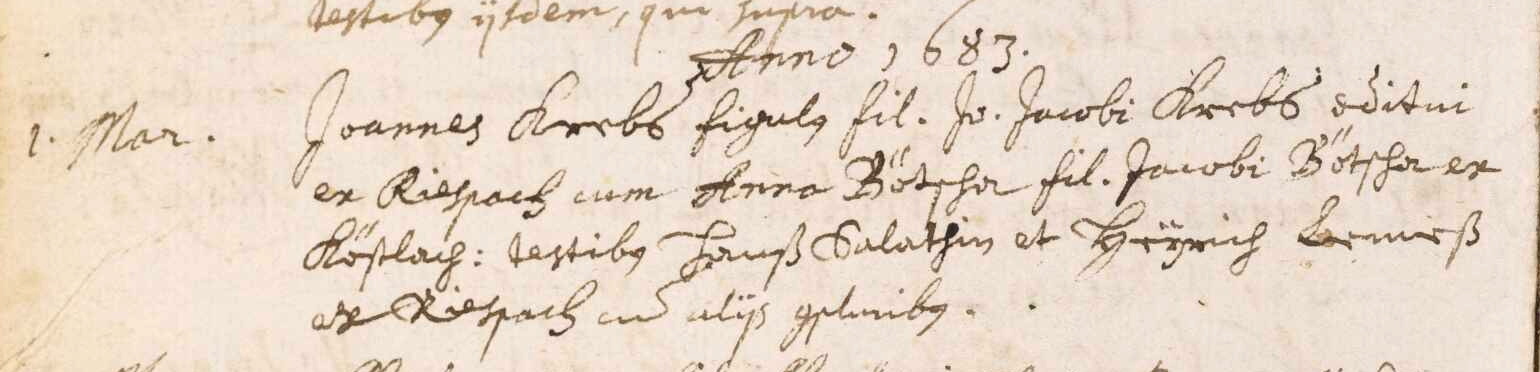 testibus ijsdem, qui supra.
Anno 1683.
1. Mar. Joannes Krebs figulus fil. Jo. Jacobi Krebs æditui
ex Riespach cum Anna Bötscha fil. Jacobi Bötscha ex
Köstlach: testibus Hanß Salathin et Heÿrich
ex Riespach cum alijs compluribus.